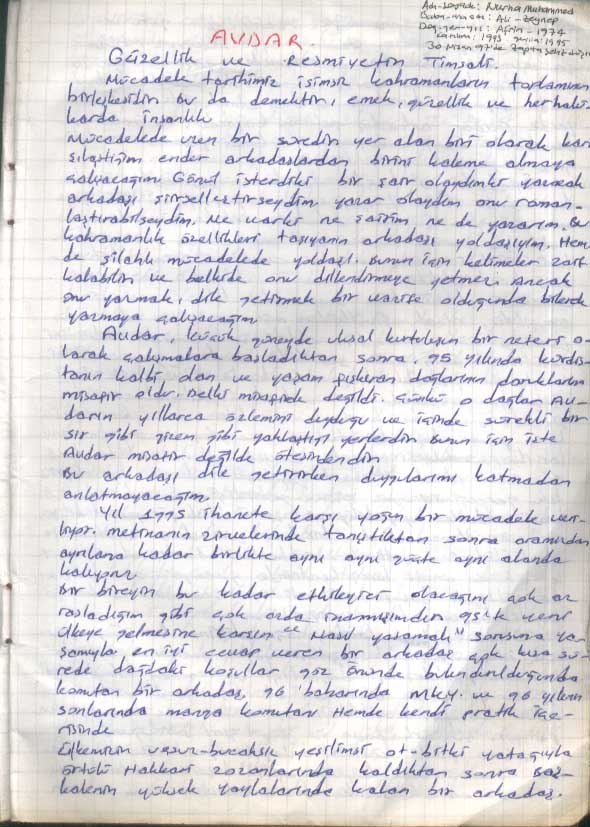 Adı-Soyadı: Nurha Muhammed
Baba-ana adı: Ali - Zeynep
Doğ-yer-yılı: Afrin - 1974
Katılım: 1993 1995
30 Nisan 97'de Zapta şehit düştü
AVDAR
Güzellik ve Resmiyetin Timsali.
Mücadele tarihimiz isimsiz kahramanların toplamının
birleşkesidir. Bu da demektir, emek, güzellik ve her halü-
karda insanlık.
Mücadelede uzun bir süredir yer alan biri olarak kar-
şılaştığım ender arkadaşlardan birini kaleme almaya
çalışacağım. Gönül isterdiki bir şair olaydımki yazacak
arkadaşı şiirselleştirseydim yazar olaydım onu roman-
laştırabilseydim. Ne varki ne şairim ne de yazarım. Bu
kahramanlık özellikleri taşıyanın arkadaşı yoldaşıyım. Hem
de silahlı mücadelede yoldaşı. Bunun için kelimeler zayıf
kalabilir ve belkide onu dillendirmeye yetmez. Ancak
onu yazmak, dile getirmek bir vazife olduğunda bilerek
yazmaya çalışacağım.
Avdar, küçük güneyde ulusal kurtuluşun bir neferi o-
larak çalışmalara başladıktan sonra. 95 yılında kürdis-
tanın kalbi olan ve yaşam fışkıran dağlarının doruklarına
misafir oldu. Belki misafirde değildi. Çünkü o dağlar Av-
darın yıllarca özlemini duyduğu ve içinde sürekli bir
sır gibi gizem gibi yaklaştığı yerlerdir. Bunun için işte
Avdar misafir değilde ötesindendir.
Bu arkadaşı dile getirirken duygularımı katmadan
anlatmayacağım.
Yıl 1995 ihanete karşı yoğun bir mücadele veri-
liyor. Metinanın zirvelerinde tanıştıktan sonra aramızdan
ayrılana kadar birlikte aynı aynı güçte aynı alanda
kalıyoruz.
Bir bireyin bu kadar etkileyici olacağını çok az
rasladığım gibi çok azda inanmışımdır. 95'te yeni
ülkeye gelmesine karşın "Nasıl yaşamalı" sorusuna ya-
şamıyla en iyi cevap veren bir arkadaş çok kısa sü-
rede dağdaki koşullar göz önünde bulundurulduğunda
komutan bir arkadaş, 96 baharında Mky. ve 96 yılının
sonlarında manga komutanı Hemde kendi pratik içe-
risinde
Ülkemizin uçsuz-bucaksız yeşilimsi ot-bitki yatağıyla
örtülü Hakkari zozanlarında kaldıktan sonra
kalenin yüksek yaylalarında kalan bir arkadaş.